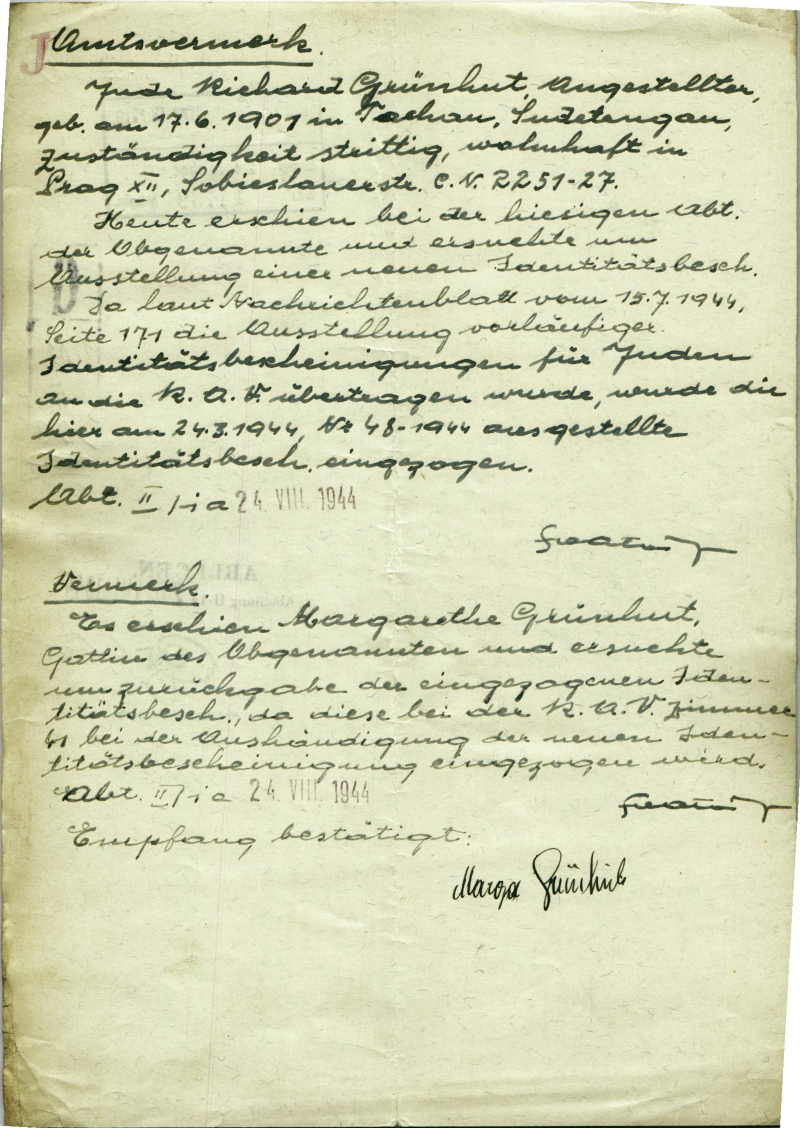 J Amtsvermerk.
Jude Richard Grünhut, Angestellter,
geb. am 17.6.1901 in Tachau, Sudetengau,
Zuständigkeit strittig, wohnhaft in
Prag XII, Sobieslauerstr. C.N. 2251-27.
Heute erschien bei der hiesigen Abt.
der Obgenannte und ersuchte um
Ausstellung einer neuen Identitätsbesch.
Da laut Nachrichtenblatt vom 15.7.1944,
Seite 171 die Ausstellung vorläufiger
Identitätsbescheinigungen für Juden
an die K.A.V. übertragen wurde, wurde die
hier am 24.3.1944, Nr 48-1944 ausgestellte
Identitätsbesch. eingezogen.
Abt. II/i a 24. VIII. 1944
Vermerk.
Es erschien Margarethe Grünhut,
Gattin des Obgenannten und ersuchte
um zurückgabe der eingezogenen Iden-
titätsbesch., da diese bei der K.A.V. Zimmer
bei der Aushändigung der neuen Iden-
titätsbescheinigung eingezogen wird.
Abt. II/i a 24. VIII. 1944
Empfang bestätigt:
Marga Grünhut